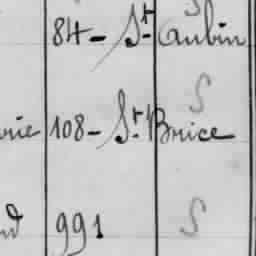 84 - St Aubin
S
rie 108 - St Brice
d 991 S